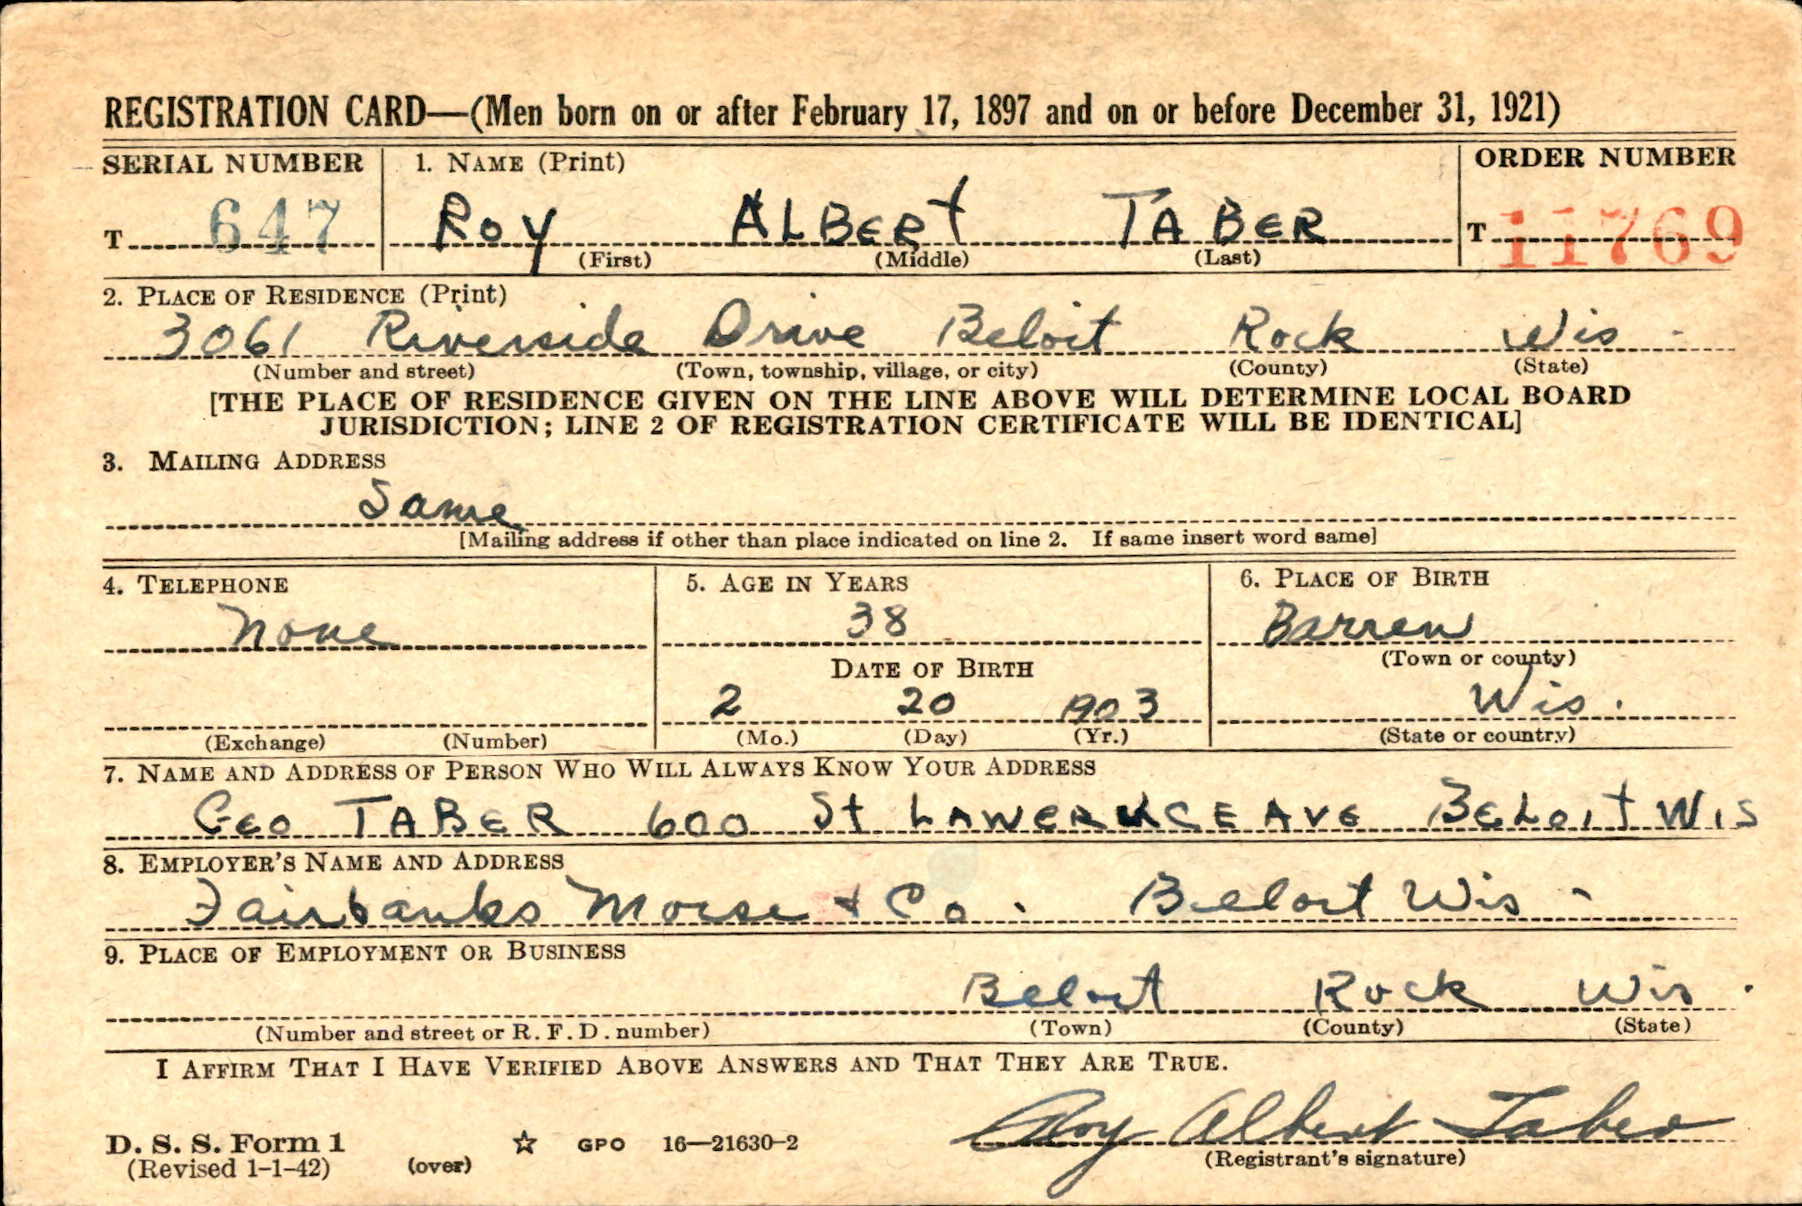 REGISTRATION CARD—(Men born on or after February 17, 1897 and on or before December 31, 1921)
SERIAL NUMBER 1. NAME (Print) ORDER NUMBER
T 647 ROY ALBERT TABER T 11769
(First) (Middle) (Last)
2. PLACE OF RESIDENCE (Print)
3061 Riverside Drive Beloit Rock Wis -
(Number and street) (Town, township, village, or city) (County) (State)
[THE PLACE OF RESIDENCE GIVEN ON THE LINE ABOVE WILL DETERMINE LOCAL BOARD
JURISDICTION; LINE 2 OF REGISTRATION CERTIFICATE WILL BE IDENTICAL]
3. MAILING ADDRESS
Same
[Mailing address if other than place indicated on line 2. If same insert word same]
4. TELEPHONE 5. AGE IN YEARS 6. PLACE OF BIRTH
None 38 Barren
(Town or county)
DATE OF BIRTH
2 20 1903 Wis.
(Exchange) (Number) (Mo.) (Day) (Yr.) (State or country)
7. NAME AND ADDRESS OF PERSON WHO WILL ALWAYS KNOW YOUR ADDRESS
GEO TABER 600 St LAWERNCE AVE BELOIT WIS
8. EMPLOYER'S NAME AND ADDRESS
Fairbanks Morse & Co. Beloit Wis -
9. PLACE OF EMPLOYMENT OR BUSINESS
Beloit Rock Wis.
(Number and street or R. F. D. number) (Town) (County) (State)
I AFFIRM THAT I HAVE VERIFIED ABOVE ANSWERS AND THAT THEY ARE TRUE.
Roy Albert Taber
D. S. S. Form 1 ☆ GPO 16—21630-2
(Revised 1-1-42) (over) (Registrant's signature)